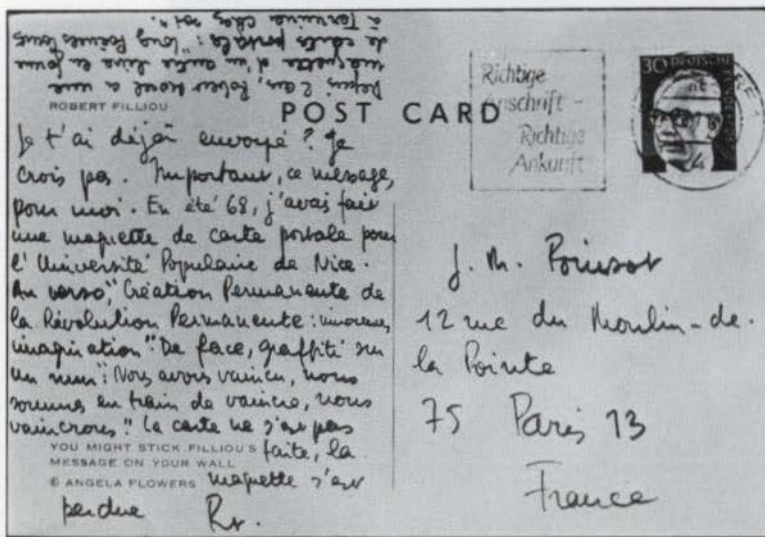 Depuis 2 ans, Robert Morel a une
maquette d'un autre livre en forme
de cartes postales : "long Poèmes courts
à Terminer chez soi".
ROBERT FILLIOU
POST CARD
Je t'ai déjà envoyé ? Je
crois pas. Important, ce message,
pour moi. En été 68, j'avais fait
une maquette de carte postale pour
l'Université Populaire de Nice.
Au verso, "Création Permanente de
la Révolution Permanente : innocence,
imagination". De face, graffiti sur
un mur : "Nous avons vaincu, nous
sommes en train de vaincre, nous
vaincrons". La carte ne s'est pas
faite, la
YOU MIGHT STICK FILLIOU'S
MESSAGE ON YOUR WALL
© ANGELA FLOWERS
maquette s'est
perdue
Richtige
Anschrift -
Richtige
Ankunft
30 DEUTSCHE
J. M. Poinsot
12 rue du Moulin-de-
la Pointe
75 Paris 13
France